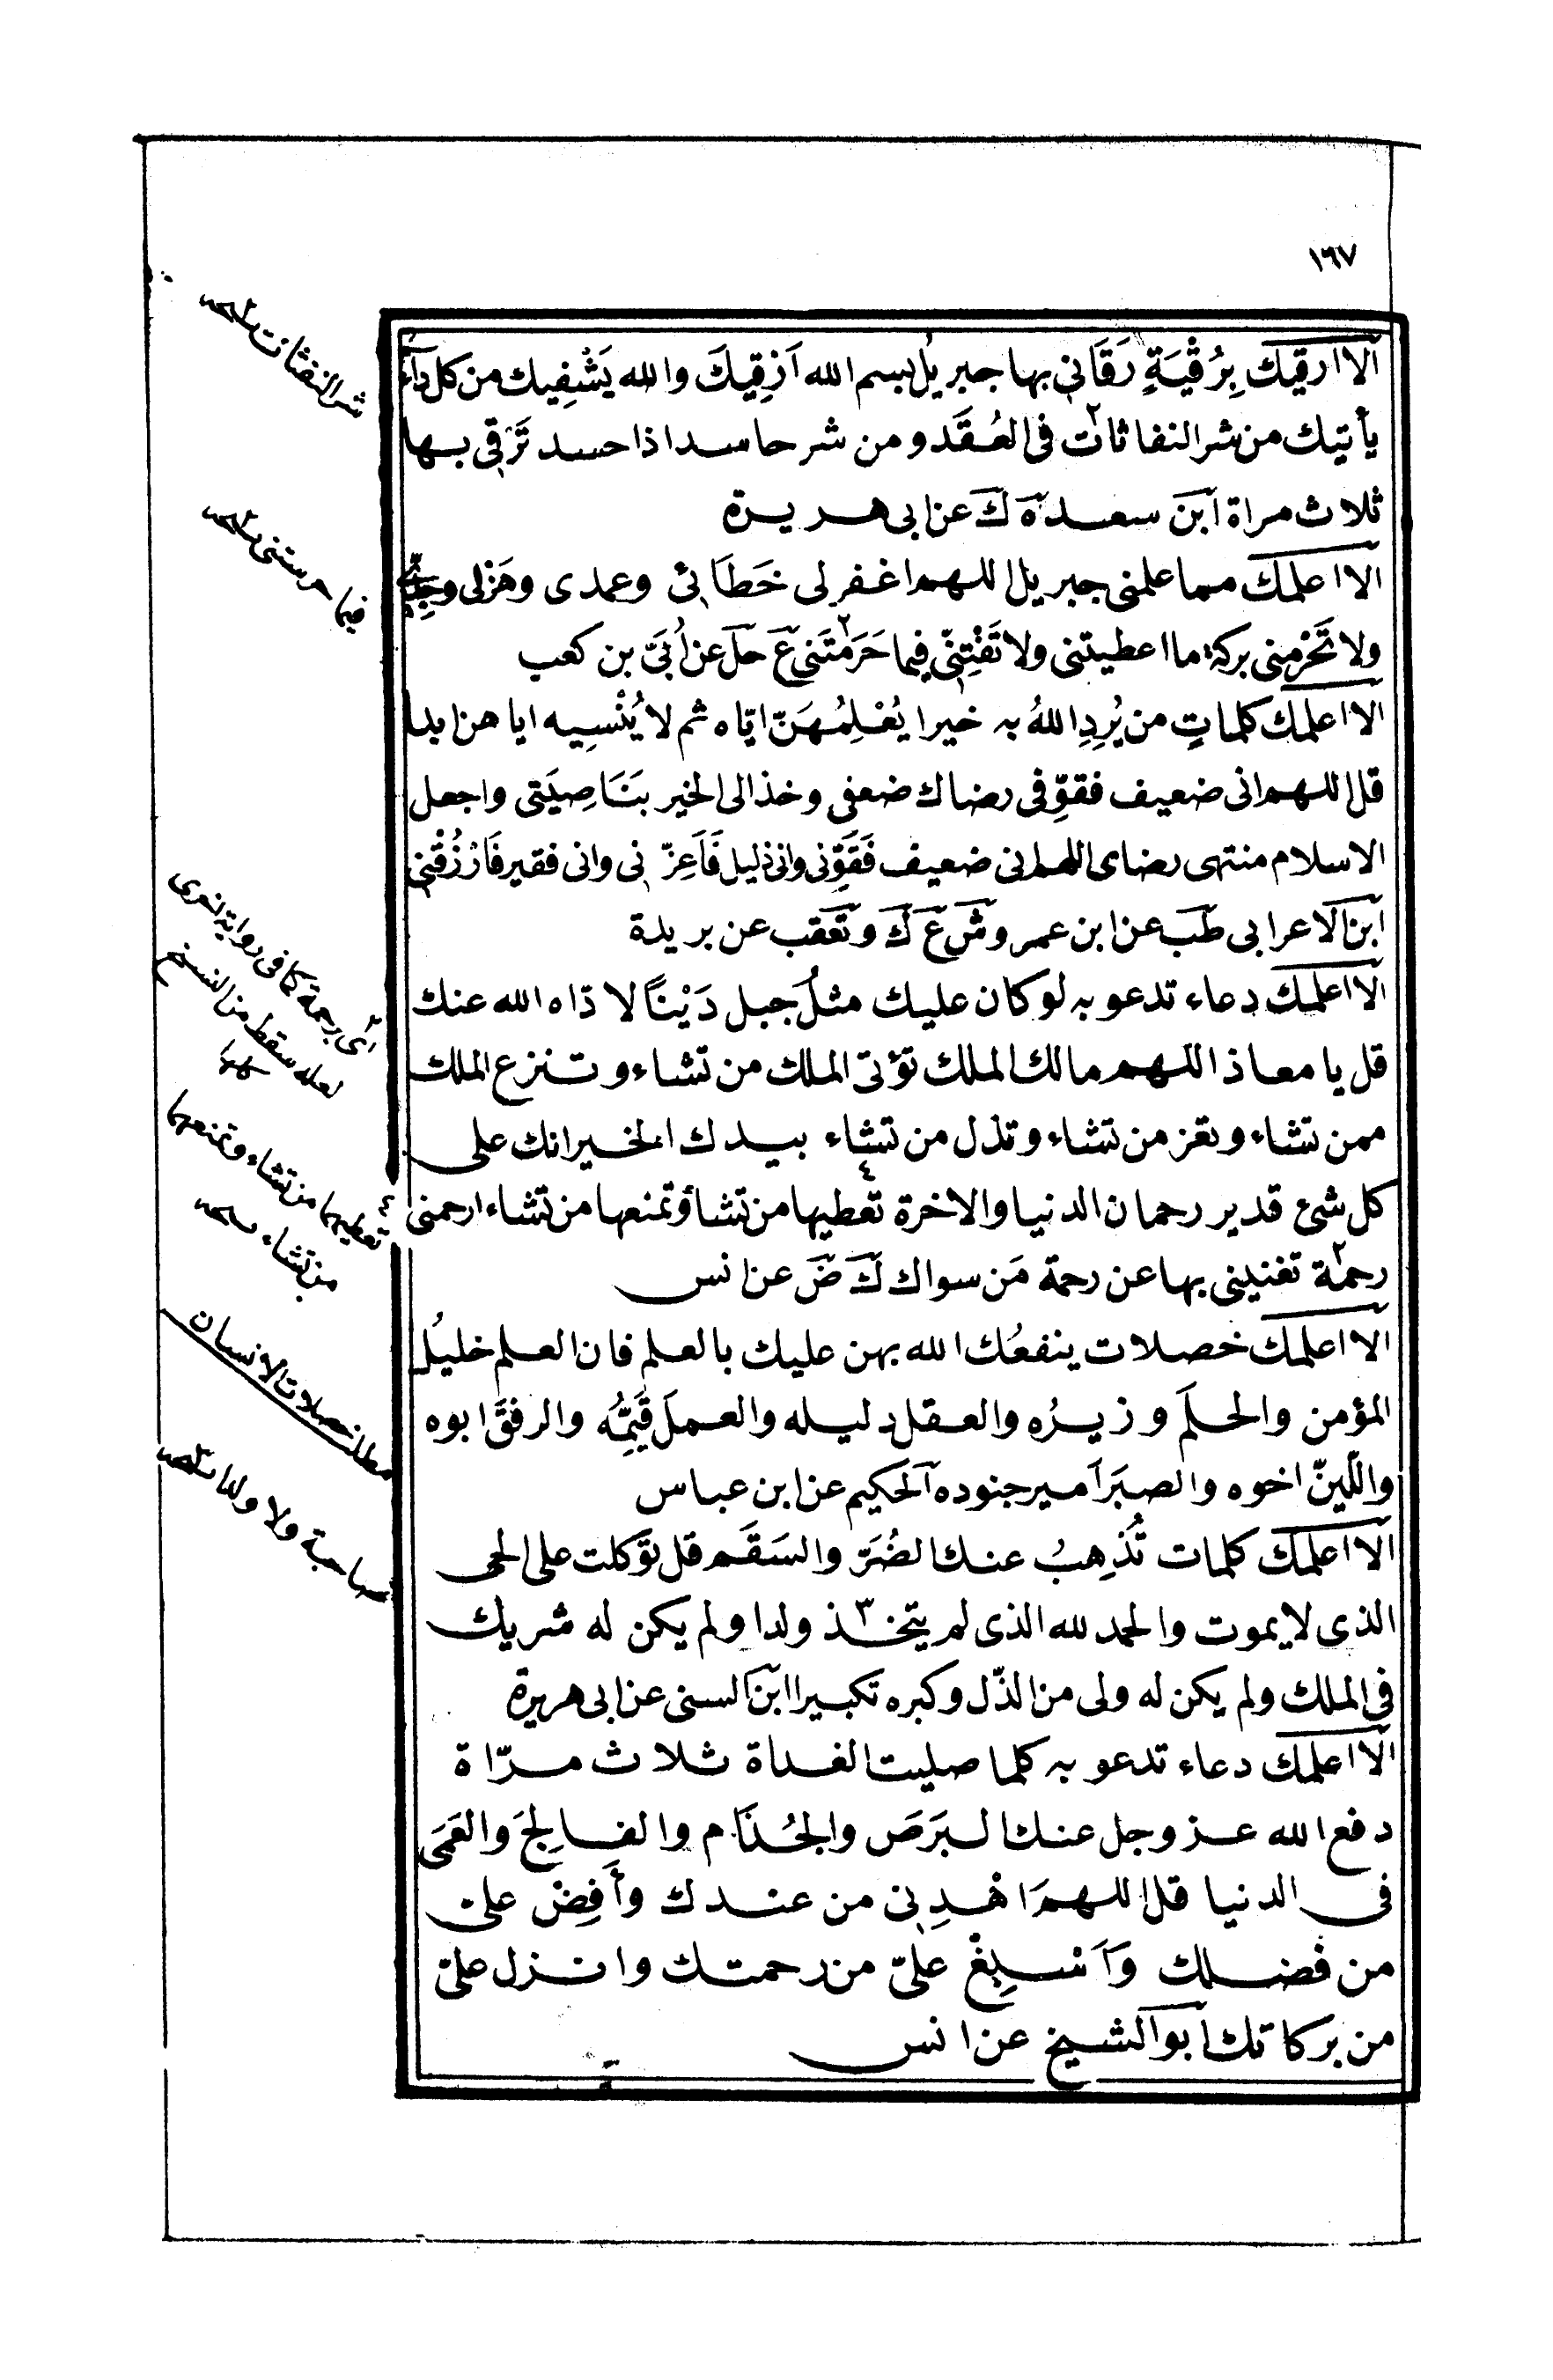 ١٦٧
ألا ارقيك بِرُقْيَةٍ رَقَانى بها جبريل بسم الله اَرْقِيكَ والله يَشْفِيك من كل داء
يأتيك من شر النفاثات فى العُقَد ومن شر حاسد اذا حسد تَرْقى بها
ثلاث مراة ابن سعد ه ك عن ابى هريرة
الا اعلمك مما علمنى جبريل اللهم اغفر لى خَطَائى وعمدى وهَزْلى وجِدّى
ولا تَحْرِمنى بركة ما اعطيتنى ولا تَفْتِنّى فيما حَرَمْتَنى ع حل عن اُبَىّ بن كعب
الا اعلمك كلماتٍ من يُرِدِ اللهُ به خيرا يُعْلِمُهَنّ ايّاه ثم لا يُنْسِيه اياهن ابدا
قل اللهم انى ضعيف فقوِّ فى رضاك ضعفى وخذ الى الخير بنَاصِيَتى واجعل
الاسلام منتهى رضاى اللهم انى ضعيف فَقَوِّنى وانى ذليل فَاَعِزّنى وانى فقير فَارْزُقْنى
ابن الاعرابى طب عن ابن عمر وش ع ك وتعقب عن بريدة
الا اعلمك دعاء تدعو به لو كان عليك مثلُ جبل دَيْنًا لادّاه الله عنك
قل يا معاذ اللهم مالك الملك تؤتى الملك من تشاء وتنزع الملك
ممن تشاء وتعز من تشاء وتذل من تشاء بيدك الخير انك على
كل شئ قدير رحمان الدنيا والاخرة تعطيها من تشأ وتمنعها من تشاء ارحمنى
رحمة تغنينى بها عن رحمة مَن سواك ك ض عن انس
الا اعلمك خصلات ينفعُك الله بهن عليك بالعلم فان العلم خليلُ
المؤمن والحلمَ وزيرُه والعقل دليله والعملَ قَيِّمُه والرفقَ ابوه
واللّينّ اخوه والصبَر اَمير جنوده الحكيم عن ابن عباس
الا اعلمك كلمات تُذهِبُ عنك الضُرّ والسَقَم قل توكلت على الحى
الذى لا يموت والحمد لله الذى لم يتخذ ولدا ولم يكن له شريك
فى الملك ولم يكن له ولى من الذّل وكبره تكبيرا ابن السنى عن ابى هريرة
الا اعلمك دعاء تدعو به كلما صليت الغداة ثلاث مرّاة
دفع الله عز وجل عنك البَرَصَ والجُذَام والفالِجَ والعَمَى
فى الدنيا قل اللهم اهْدِنى من عندك وأَفِضْ علىّ
من فضلك وَاَسْبِغْ علىّ من رحمتك وانزل علىّ
من بركاتك ابو الشيخ عن انس
شر النفثات نسخه
فيما حرستنى نسخه
اى برحمة كما فى رواية اخرى
لعله سقط من النسخ
كلها
٤ تعطيهما من تشاء وتمنعهما
من تشاء نسخه
مطلب خصلات الانسان
صاحبة ولا ولدا نسخه